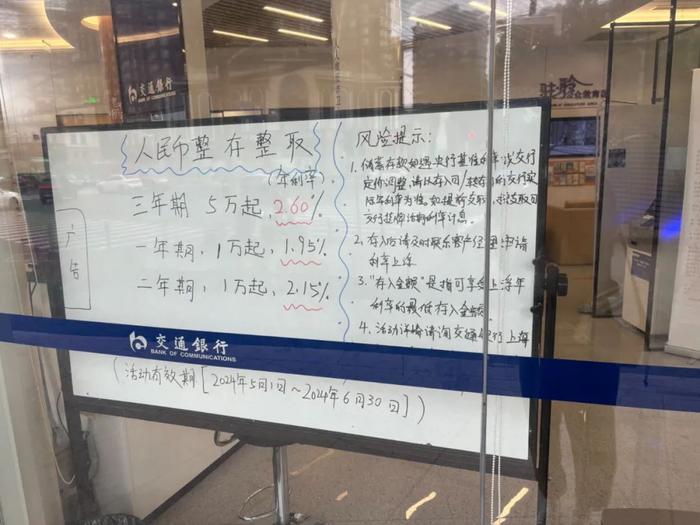 交通銀行
BANK OF COMMUNICATIONS
人民币整存整取
(年利率)
三年期 5万起, 2.60%
一年期, 1万起, 1.95%
二年期, 1万起, 2.15%
广告
风险提示:
1. 储蓄存款如遇央行基准利率或交行
定价调整, 请以存入日/转存日的交行实
际年利率为准。如提前支取, 按支取日
交行挂牌活期利率计息。
2. 存入后请及时联系客户经理申请
利率上浮
3. "存入金额"是指可享受上浮年
利率的最低存入金额
4. 活动详情请询交通银行上海
交通銀行
BANK OF COMMUNICATIONS
(活动有效期[2024年5月1日~2024年6月30日])